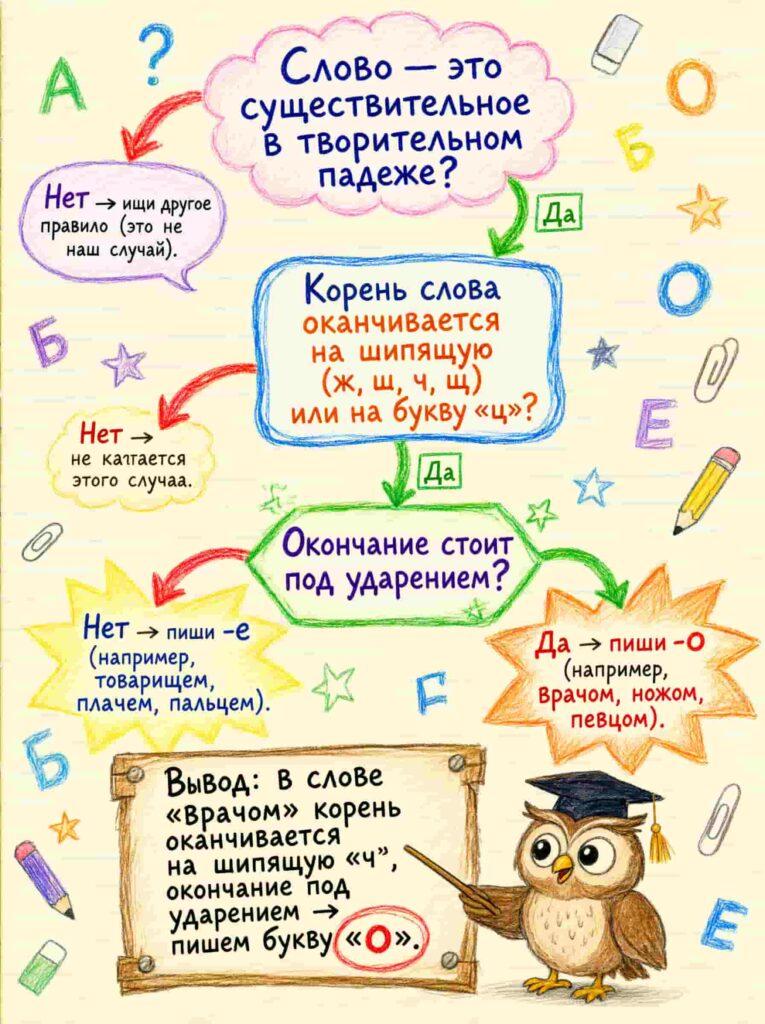 Слово — это
существительное
в творительном
падеже?
Нет → ищи другое
правило (это не
наш случай).
Да
Корень слова
оканчивается
на шипящую
(ж, ш, ч, щ)
или на букву «ц»?
Нет →
не каттается
этого случаа.
Да
Окончание стоит
под ударением?
Нет → пиши -е
(например,
товарищем,
плачем, пальцем).
Да → пиши -О
(например,
врачом, ножом,
певцом).
Вывод: в слове
«врачом» корень
оканчивается
на шипящую «ч”,
окончание под
ударением →
пишем букву «О».
А
?
О
Б
О
Б
Е
Б
Е